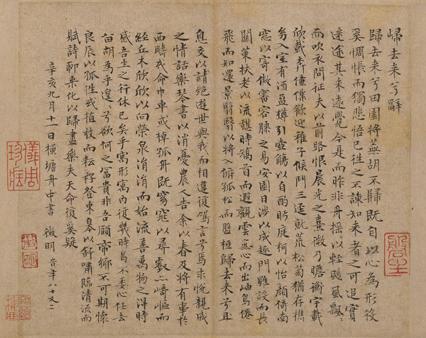 歸去來兮辭
歸去來兮田園將蕪胡不歸既自以心為形役
奚惆悵而獨悲悟已往之不諫知來者之可追實
迷途其未遠覺今是而昨非舟搖以輕颺風飄
而吹衣問征夫以前路恨晨光之熹微乃瞻衡宇載
欣載奔僮僕歡迎稚子候門三逕就荒松菊猶存攜
幼入室有酒盈樽引壺觴以自酌眄庭柯以怡顏倚南
窗以寄傲審容膝之易安園日涉以成趣門雖設而長
關策扶老以流憩時矯首而遐觀雲無心而出岫鳥倦
飛而知還景翳翳以將入撫孤松而盤桓歸去來兮且
息交以請絕遊世與我而相違復駕言兮焉求悅親戚
之情話樂琴書以消憂農人告余以春及將有事於
西疇或命巾車或棹孤舟既窈窕以尋壑亦崎嶇而
經丘木欣欣以向榮泉涓涓而始流善萬物之得時
感吾生之行休已矣乎寓形宇內復幾時曷不委心任去
留胡為乎遑遑兮欲何之富貴非吾願帝鄉不可期懷
良辰以孤往或植杖而耘耔登東皋以舒嘯臨清流而
賦詩聊乘化以歸盡樂夫天命復奚疑
辛亥九月十一日橫塘舟中書徵明時年八十又二